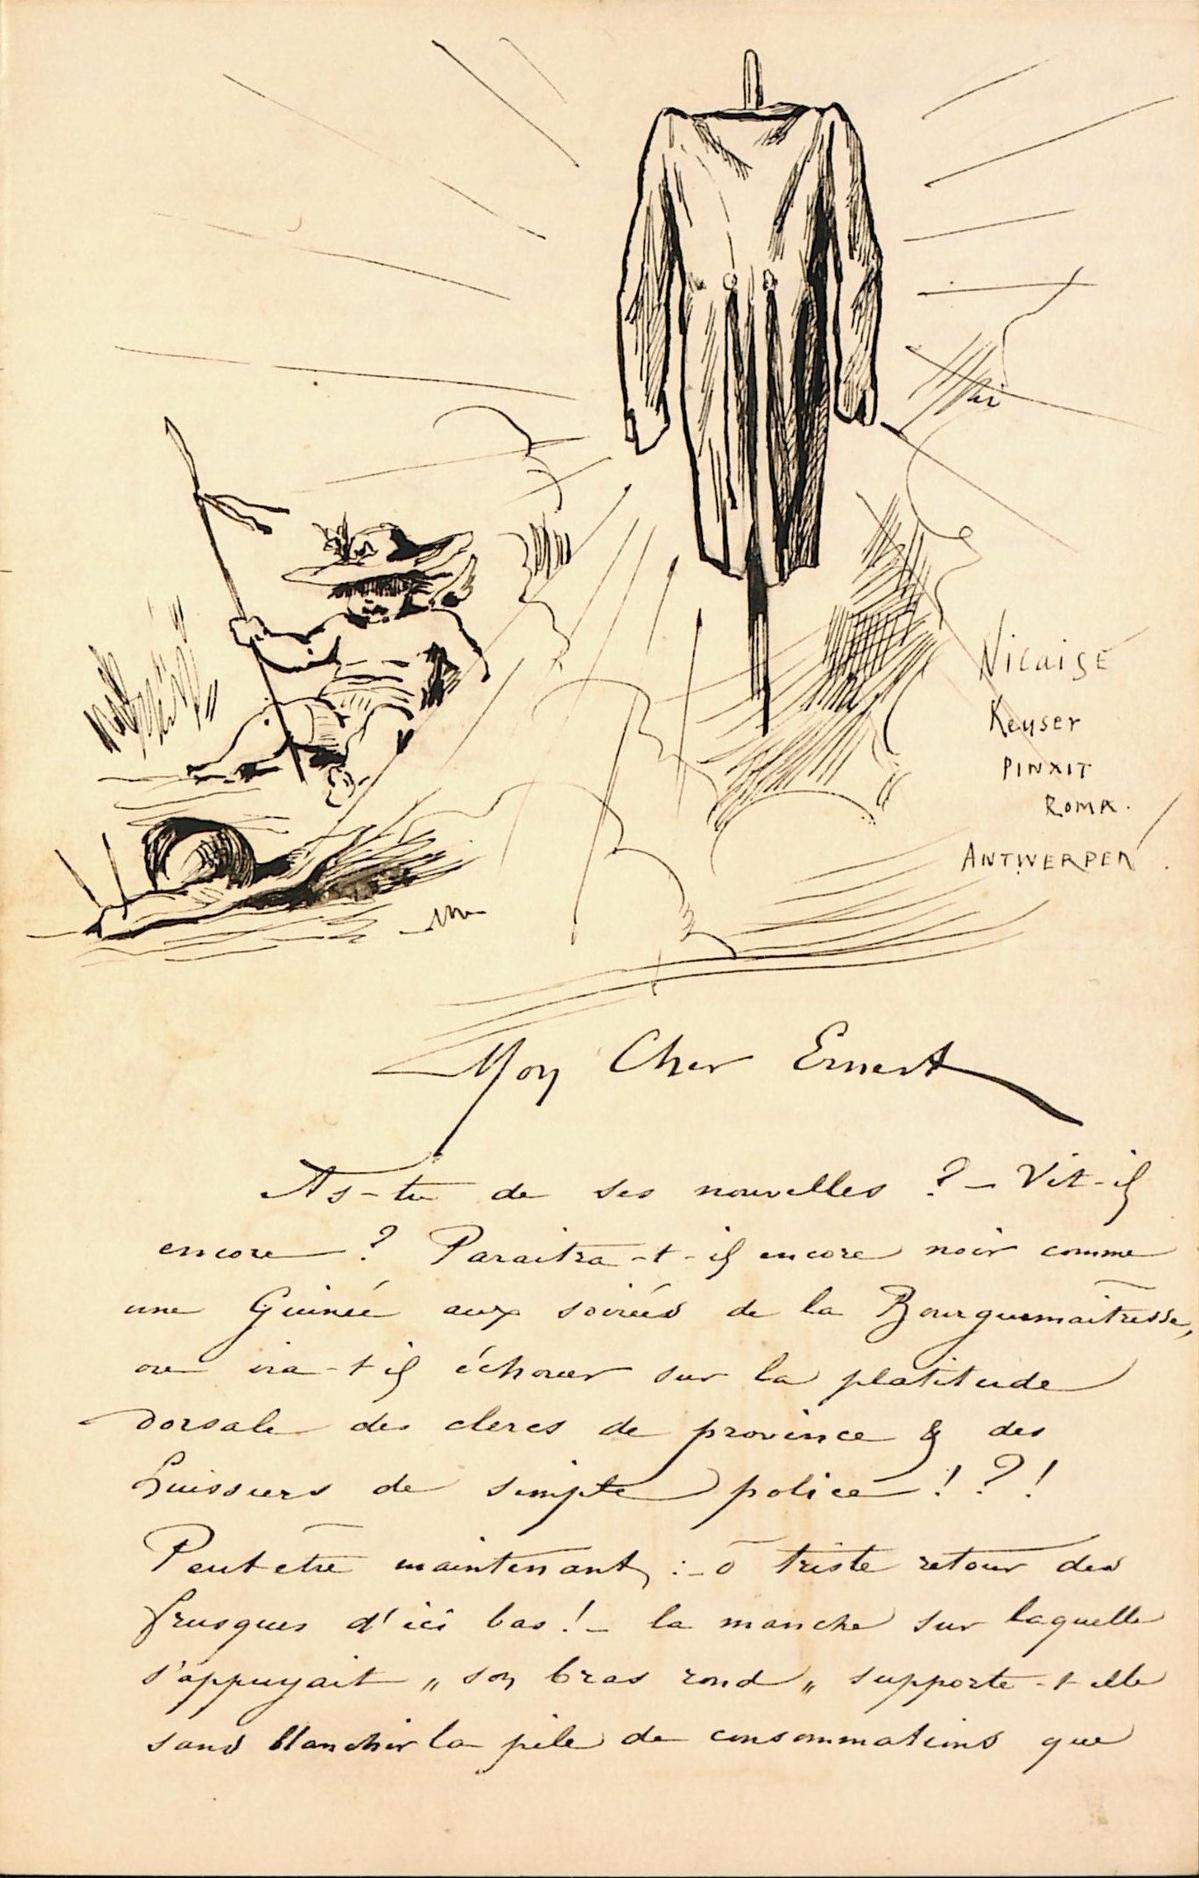 Nicaise
Keyser
PINXIT
ROMA.
ANTWERPEN.
Mon Cher Ernest
As-tu de ses nouvelles ? – Vit-il
encore ? Paraitra-t-il encore noir comme
une Guinée aux soirées de la Bourguemaîtresse,
ou ira-t-il échouer sur la platitude
dorsale des clercs de province & des
huissiers de simple police ! ? !
Peut etre maintenant, : – ô triste retour des
frusques d'ici bas ! – la manche sur laquelle
s'appuyait „ son bras rond „ supporte-t-elle
sans blanchir la pile de consommations que